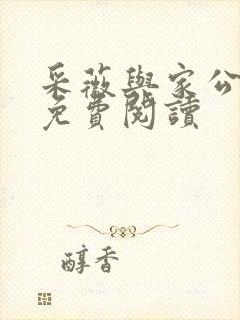 采薇與家公
免費閱讀
醇香